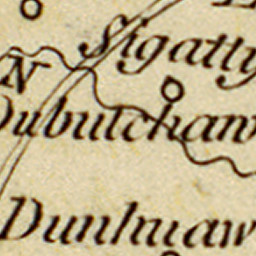 Sigatty
N
Dubutchaw
Dunhuaw